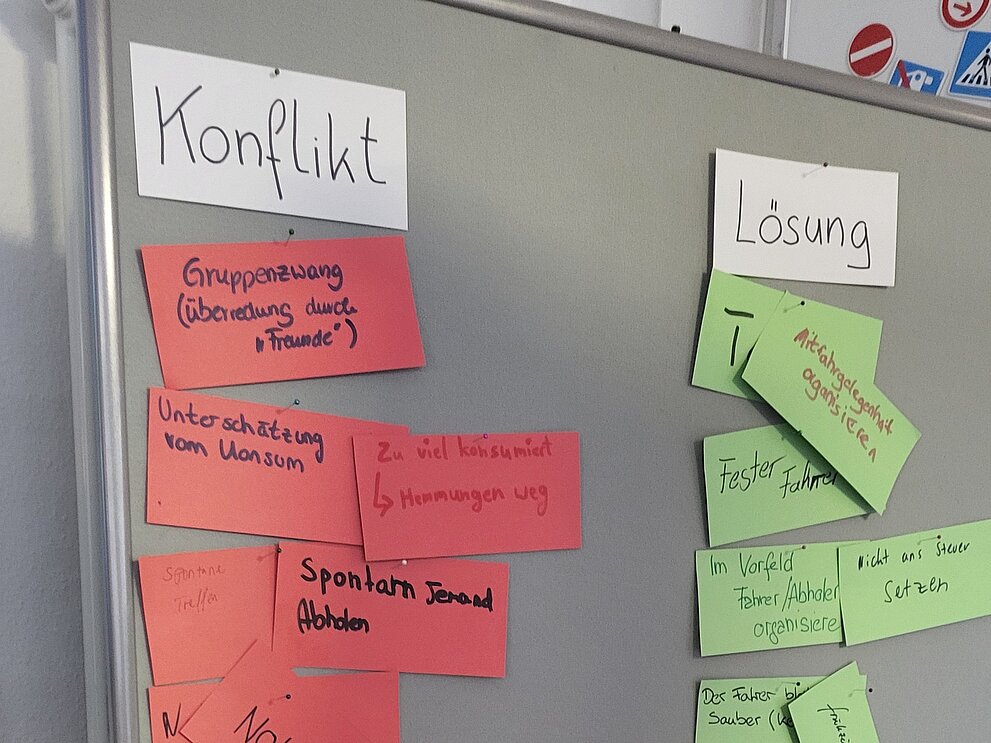 Konflikt
Gruppenzwang
(überredung durch
„Freunde“)
Unterschätzung
vom Konsum
Zu viel konsumiert
↳ Hemmungen weg
Spontane
Treffen
Spontarn Jemand
Abholen
Lösung
Mitfahrgelegenheit
organisieren
Fester Fahrer
Im Vorfeld
Fahrer/Abholer
organisiere
Nicht ans Steuer
Setzen
Der Fahrer
Sauber